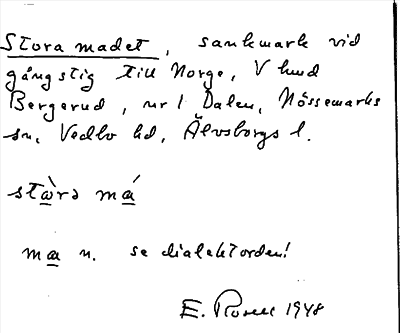 Stora madet, sankmark vid
gångstig till Norge, V hmd
Bergerud, nr 1 Dalen, Nössemarks
sn, Vedbo hd, Älvsborgs l.
stàrə má
ma n. se dialektorden!
E. Rosell 1948